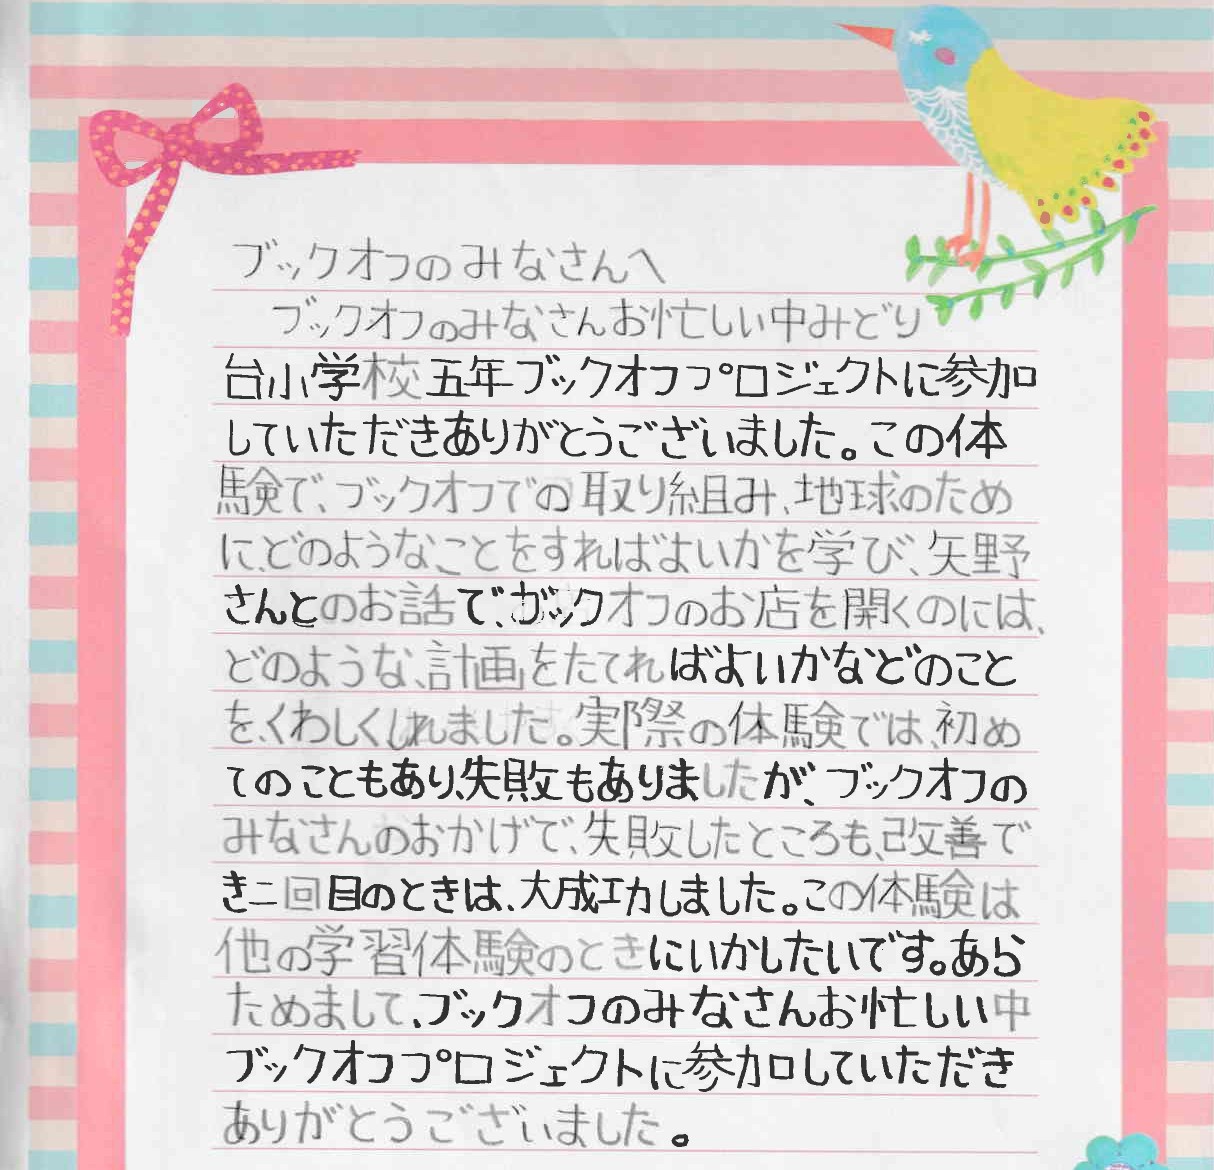 ブックオフのみなさんへ
ブックオフのみなさんお忙しい中みどり
台小学校五年ブックオフプロジェクトに参加
していただきありがとうございました。この体
験で、ブックオフでの取り組み、地球のため
に、どのようなことをすればよいかを学び、矢野
さんとのお話で、ブックオフのお店を開くのには、
どのような、計画をたてればよいかなどのこと
を、くわしくしれました。実際の体験では、初め
てのこともあり、失敗もありましたが、ブックオフの
みなさんのおかげで、失敗したところも、改善で
き二回目のときは、大成功しました。この体験は
他の学習体験のときにいかしたいです。あら
ためまして、ブックオフのみなさんお忙しい中
ブックオフプロジェクトに参加していただき
ありがとうございました。